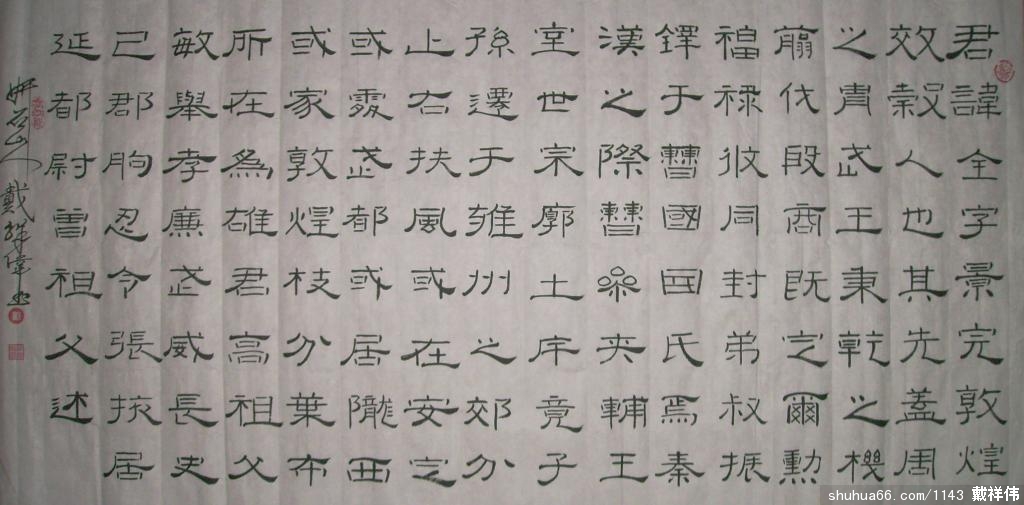 君諱全字景完敦煌
效穀人也其先蓋周
之胄武王秉乾之機
翦伐殷商既定爾勳
福祿攸同封弟叔振
鐸于曹國因氏焉秦
漢之際曹參夾輔王
室世宗廓土斥竟子
孫遷于雍州之郊分
止右扶風或在安定
或處武都或居隴西
或家敦煌枝分葉布
所在為雄君高祖父
敏舉孝廉武威長史
巴郡朐忍令張掖居
延都尉曾祖父述
山人戴祥偉
shuhua66.com/1143 戴祥伟